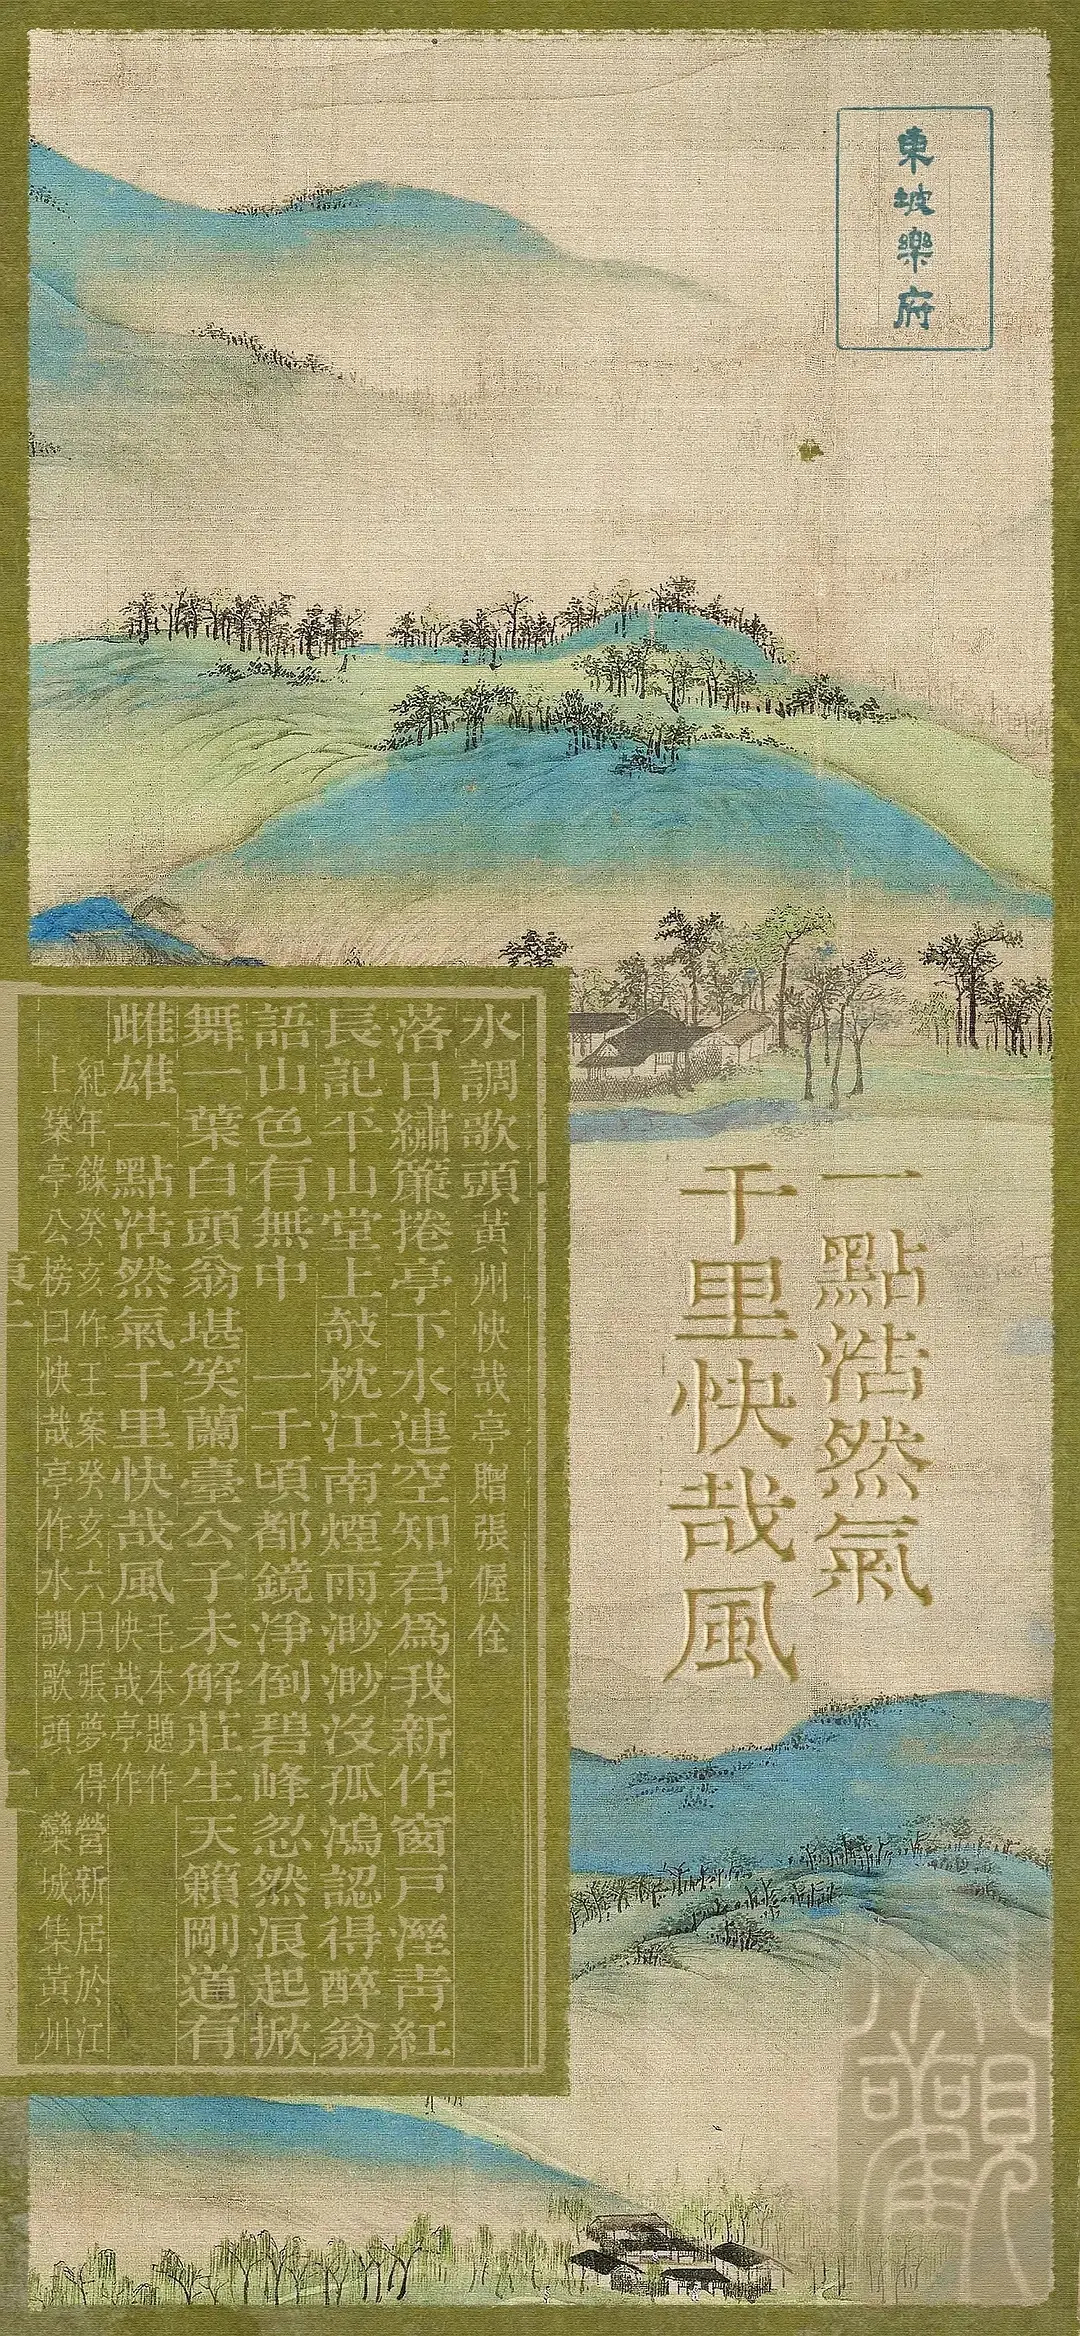 東坡樂府
一點浩然氣
千里快哉風
水調歌頭黃州快哉亭贈張偓佺
落日繡簾捲亭下水連空知君爲我新作窗戶溼青紅
長記平山堂上敧枕江南煙雨渺渺沒孤鴻認得醉翁
語山色有無中 一千頃都鏡淨倒碧峰忽然浪起掀
舞一葉白頭翁堪笑蘭臺公子未解莊生天籟剛道有
雌雄一點浩然氣千里快哉風毛本題作
快哉亭作
紀年錄癸亥作王案癸亥六月張夢得營新居於江
上築亭公榜曰快哉亭作水調歌頭 欒城集黃州